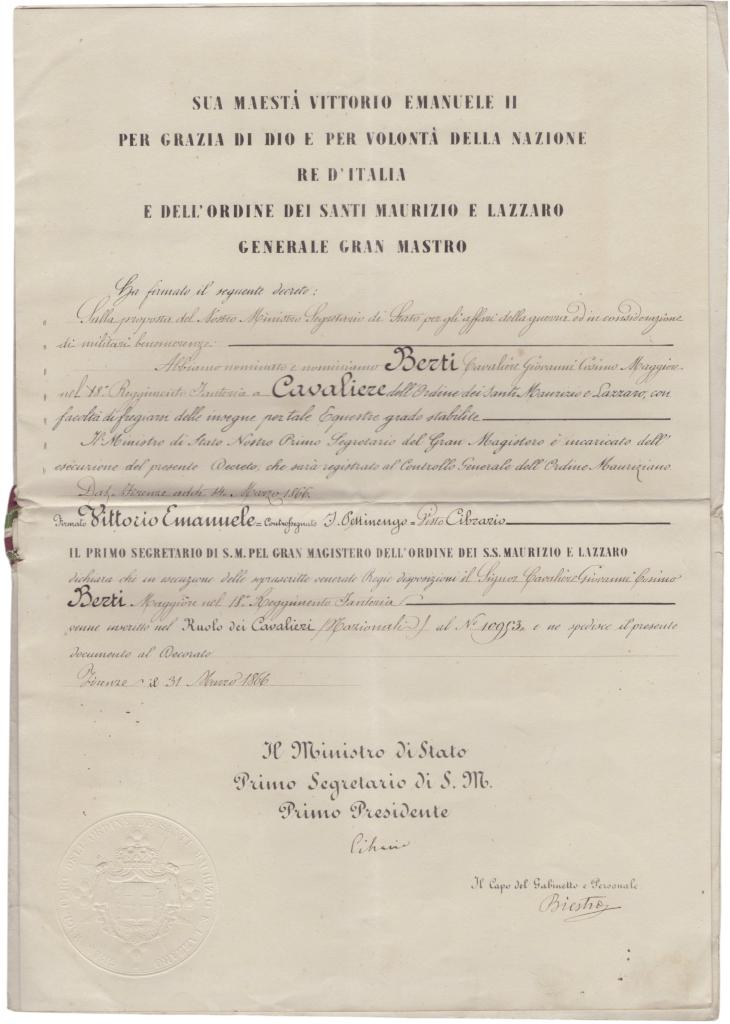 SUA MAESTÁ VITTORIO EMANUELE II
PER GRAZIA DI DIO E PER VOLONTÀ DELLA NAZIONE
RE D'ITALIA
E DELL'ORDINE DEI SANTI MAURIZIO E LAZZARO
GENERALE GRAN MASTRO
Ha firmato il seguente decreto:
Sulla proposta del Nostro Ministro Segretario di Stato per gli affari della guerra ed in considerazione
di militari benemerenze:
Abbiamo nominato e nominiamo Berti Cavaliere Giovanni Cosimo Maggiore
nel 18° Reggimento Fanteria a Cavaliere dell'Ordine dei Santi Maurizio e Lazzaro, con
facoltà di fregiarsi delle insegne per tale Equestre grado stabilite
Il Ministro di Stato Nostro Primo Segretario del Gran Magistero è incaricato dell'
esecuzione del presente Decreto, che sarà registrato al Controllo Generale dell'Ordine Mauriziano.
Dat. Firenze addì 14 Marzo 1866
Firmato Vittorio Emanuele = Controsegnato I. Pettinengo = Visto Cibrario
IL PRIMO SEGRETARIO DI S.M. PEL GRAN MAGISTERO DELL'ORDINE DEI S.S. MAURIZIO E LAZZARO
dichiara che in esecuzione delle soprascritte venerate Regie disposizioni il Signor Cavaliere Giovanni Cosimo
Berti Maggiore nel 18° Reggimento Fanteria
venne inscritto nel Ruolo dei Cavalieri (Nazionali) al N° 10953, e ne spedisce il presente
documento al Decorato
Firenze il 31 Marzo 1866
Il Ministro di Stato
Primo Segretario di S. M.
Primo Presidente
Cibrario
Il Capo del Gabinetto e Personale
Biestro